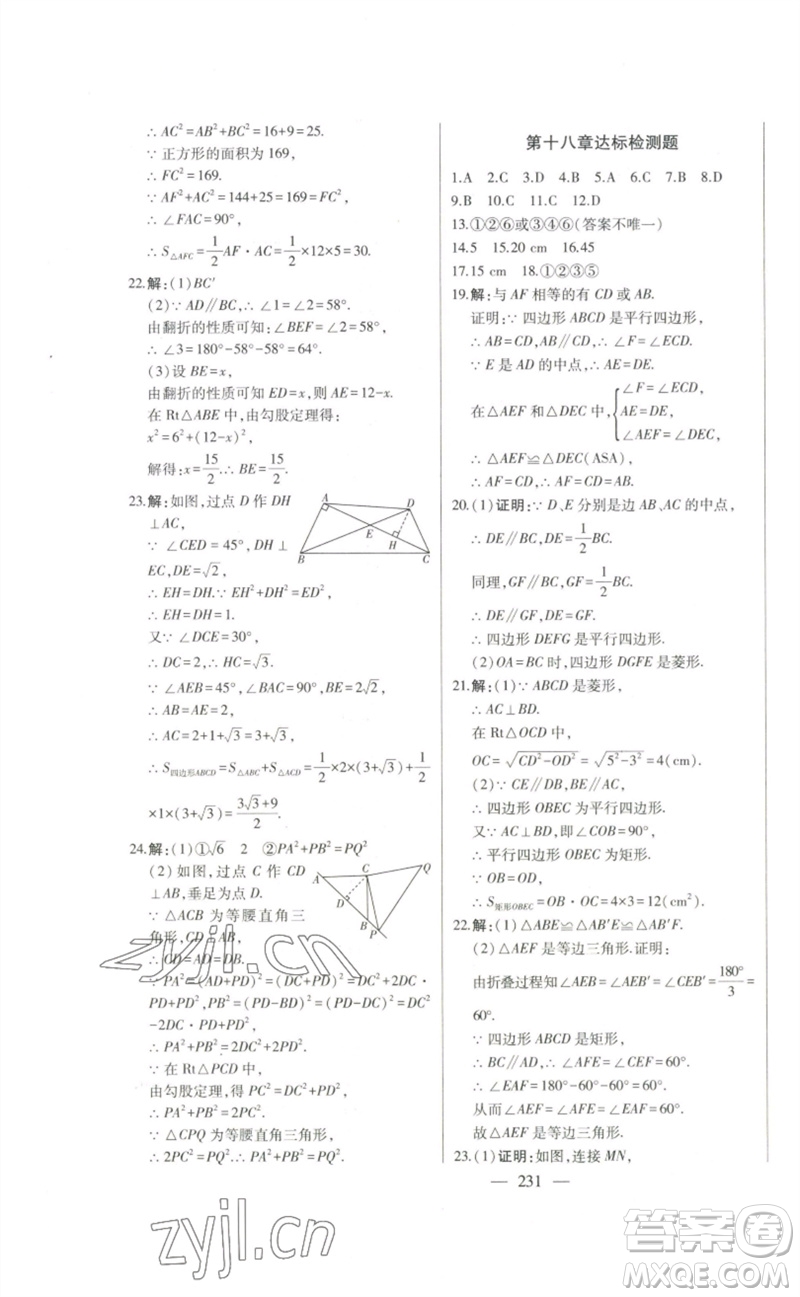 ∴ AC²=AB²+BC²=16+9=25.
∵ 正方形的面积为 169,
∴ FC²=169.
∵ AF²+AC²=144+25=169=FC²,
∴ ∠FAC=90°,
∴ S△AFC=1/2 AF·AC=1/2×12×5=30.
22.解:(1)BC′
(2)∵ AD∥BC,∴ ∠1=∠2=58°.
由翻折的性质可知:∠BEF=∠2=58°,
∴ ∠3=180°-58°-58°=64°.
(3)设 BE=x,
由翻折的性质可知 ED=x,则 AE=12-x.
在 Rt△ABE 中,由勾股定理得:
x²=6²+(12-x)²,
解得:x=15/2.∴ BE=15/2.
23.解:如图,过点 D 作 DH
⊥AC,
∵ ∠CED=45°,DH⊥
EC,DE=√2,
∴ EH=DH.∵ EH²+DH²=DE²,
∴ EH=DH=1.
又∵ ∠DCE=30°,
∴ DC=2,∴ HC=√3.
∵ ∠AEB=45°,∠BAC=90°,BE=2√2,
∴ AB=AE=2,
∴ AC=2+1+√3=3+√3,
∴ S四边形ABCD=S△ABC+S△ACD=1/2×2×(3+√3)+1/2
×1×(3+√3)=(3√3+9)/2.
A
D
E
H
B
C
24.解:(1)①√6 2 ②PA²+PB²=PQ²
(2)如图,过点 C 作 CD
⊥AB,垂足为点 D.
∵ △ACB 为等腰直角三
角形,CD⊥AB,
∴ CD=AD=DB.
A
C
Q
D
B
P
∵ PA²=(AD+PD)²=(DC+PD)²=DC²+2DC·
DP+PD²,PB²=(PD-BD)²=(PD-DC)²=DC²-
2DC·PD+PD²,
∴ PA²+PB²=2DC²+2PD².
∵ 在 Rt△PCD 中,
由勾股定理,得 PC²=DC²+PD²,
∴ PA²+PB²=2PC².
∵ △CPQ 为等腰直角三角形,
∴ 2PC²=PQ².∴ PA²+PB²=PQ².
第十八章达标检测题
1.A 2.C 3.D 4.B 5.B 6.D 7.B 8.D
9.B 10.C 11.C 12.D
13.①②⑥或③④⑥(答案不唯一)
14.5 15.20 cm 16.45
17.15 cm 18.①②③⑤
19.解:与 AF 相等的有 CD 或 AB.
证明:∵ 四边形 ABCD 是平行四边形,
∴ AB=CD,AB∥CD,∴ ∠F=∠ECD.
∵ E 是 AD 的中点,∴ AE=DE.
在△AEF 和△DEC 中,{∠F=∠ECD,
AE=DE,
∠AEF=∠DEC,
∴ △AEF≌△DEC(ASA),
∴ AF=CD,∴ AF=AB.
20.(1)证明:∵ D、E 分别是边 AB、AC 的中点,
∴ DE∥BC,DE=1/2 BC.
同理,GF∥BC,GF=1/2 BC.
∴ DE∥GF,DE=GF.
∴ 四边形 DEFG 是平行四边形.
(2)OA=BC 时,四边形 DGFE 是菱形.
21.解:(1)∵ ABCD 是菱形,
∴ AC⊥BD.
在 Rt△OCD 中,
OC=√(CD²-OD²)=√(5²-3²)=4(cm).
(2)∵ CE∥DB,BE∥AC,
∴ 四边形 OBEC 为平行四边形.
又∵ AC⊥BD,即∠COB=90°,
∴ 平行四边形 OBEC 为矩形.
∵ OB=OD,
∴ S矩形OBEC=OB·OC=4×3=12(cm²).
22.解:(1)△ABE≌△AB′E≌△AB′F.
(2)△AEF 是等边三角形.证明:
由折叠过程知∠AEB=∠AEB′=∠CEB′=180°/3=
60°.
∵ 四边形 ABCD 是矩形,
∴ BC∥AD,∴ ∠AFE=∠CEF=60°.
∴ ∠EAF=180°-60°-60°=60°.
从而∠AFE=∠AEF=∠EAF=60°.
故△AEF 是等边三角形.
23.(1)证明:如图,连接 MN,
— 231 —
zyjl.cn
zyjl.cn
答案圈
MXQE.COM